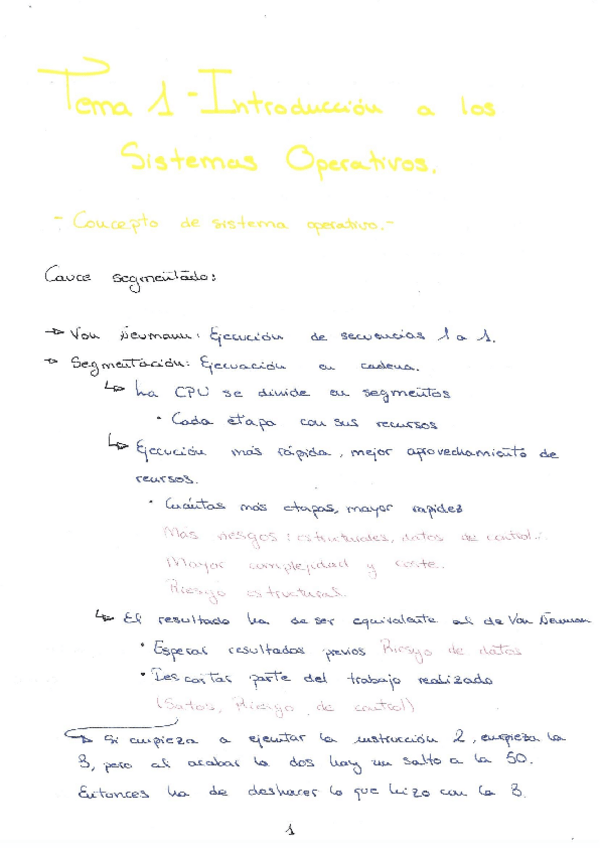 Tema 1 - Introducción a los
Sistemas Operativos.
- Concepto de sistema operativo. -
Cauce segmentado:
→ Von Neumann: Ejecución de secuencias 1 a 1.
→ Segmentación: Ejecuación en cadena.
↳ La CPU se divide en segmentos
· Cada etapa con sus recursos
↳ Ejecución más rápida, mejor aprovechamiento de
recursos.
· Cuántas más etapas, mayor rapidez
Más riesgos: estructurales, datos de control...
Mayor complejidad y coste.
Riesgo estructural.
↳ El resultado ha de ser equivalente al de Von Neuman
· Esperar resultados previos Riesgo de datos
· Descartar parte del trabajo realizado
(Saltos, Riesgo de control)
→ Si empieza a ejecutar la instrucción 2, empieza la
3, pero al acabar la dos hay un salto a la 50.
Entonces ha de deshacer lo que hizo con la 3.
1